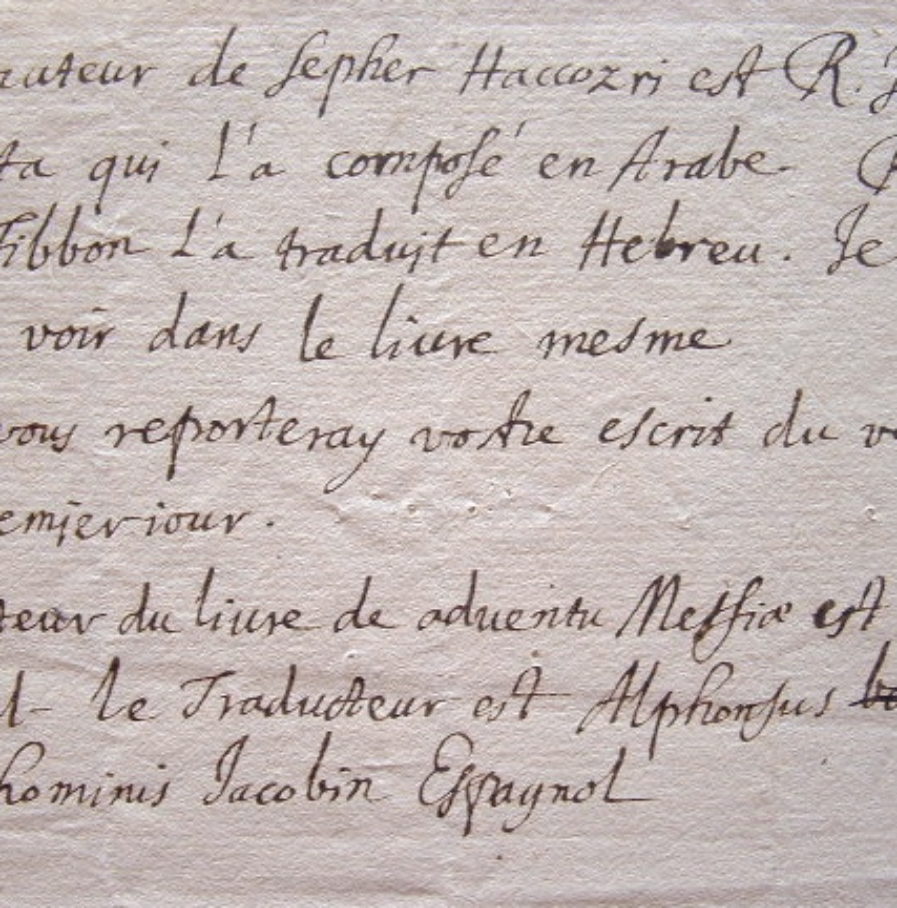 rateur de Sepher Haccozri est R. J
ta qui l'a composé en Arabe. R
Tibbon l'a traduit en Hebreu. Je
voir dans le liure mesme
vous reporteray vostre escrit du
emier iour.
teur du liure de aduentu Messiæ est
l - le Traducteur est Alphonsus
hominis Jacobin Espagnol